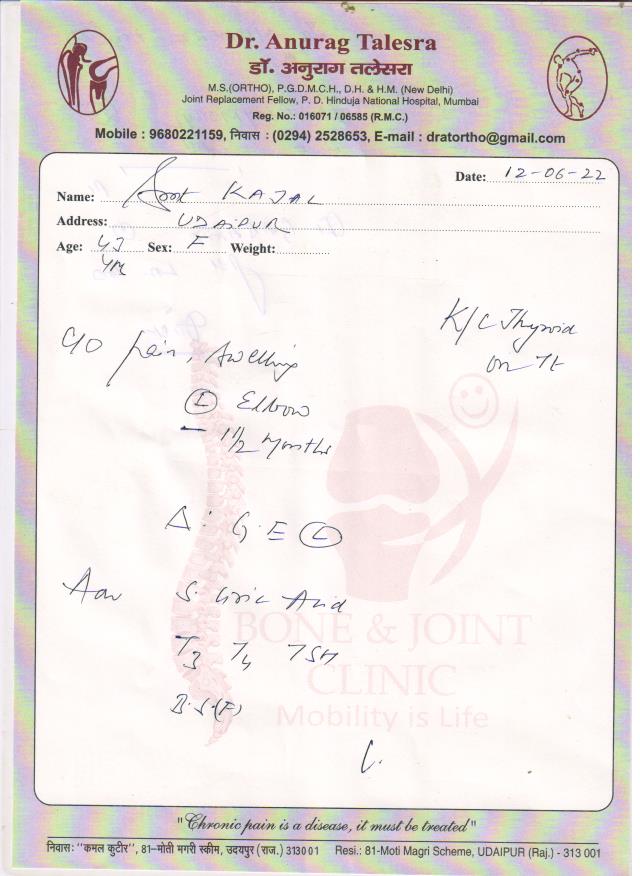 Dr. Anurag Talesra
डॉ. अनुराग तलेसरा
M.S.(ORTHO), P.G.D.M.C.H., D.H. & H.M. (New Delhi)
Joint Replacement Fellow, P. D. Hinduja National Hospital, Mumbai
Reg. No.: 016071 / 06585 (R.M.C.)
Mobile : 9680221159, निवास : (0294) 2528653, E-mail : dratortho@gmail.com
Date: 12-06-22
Name: KAJAL
Address: UDAIPUR
Age: 43 Sex: F Weight:
K/C Thyroid
on Tt
C/O pain, Swelling
(L) Elbow
- 1 1/2 Months
Δ: G.E (L)
Adv S. Uric Acid
T3 T4 TSH
B.S.(F)
BONE & JOINT
CLINIC
Mobility is Life
"Chronic pain is a disease, it must be treated"
निवास: "कमल कुटीर", 81-मोती मगरी स्कीम, उदयपुर (राज.) 313001 Resi.: 81-Moti Magri Scheme, UDAIPUR (Raj.) - 313 001